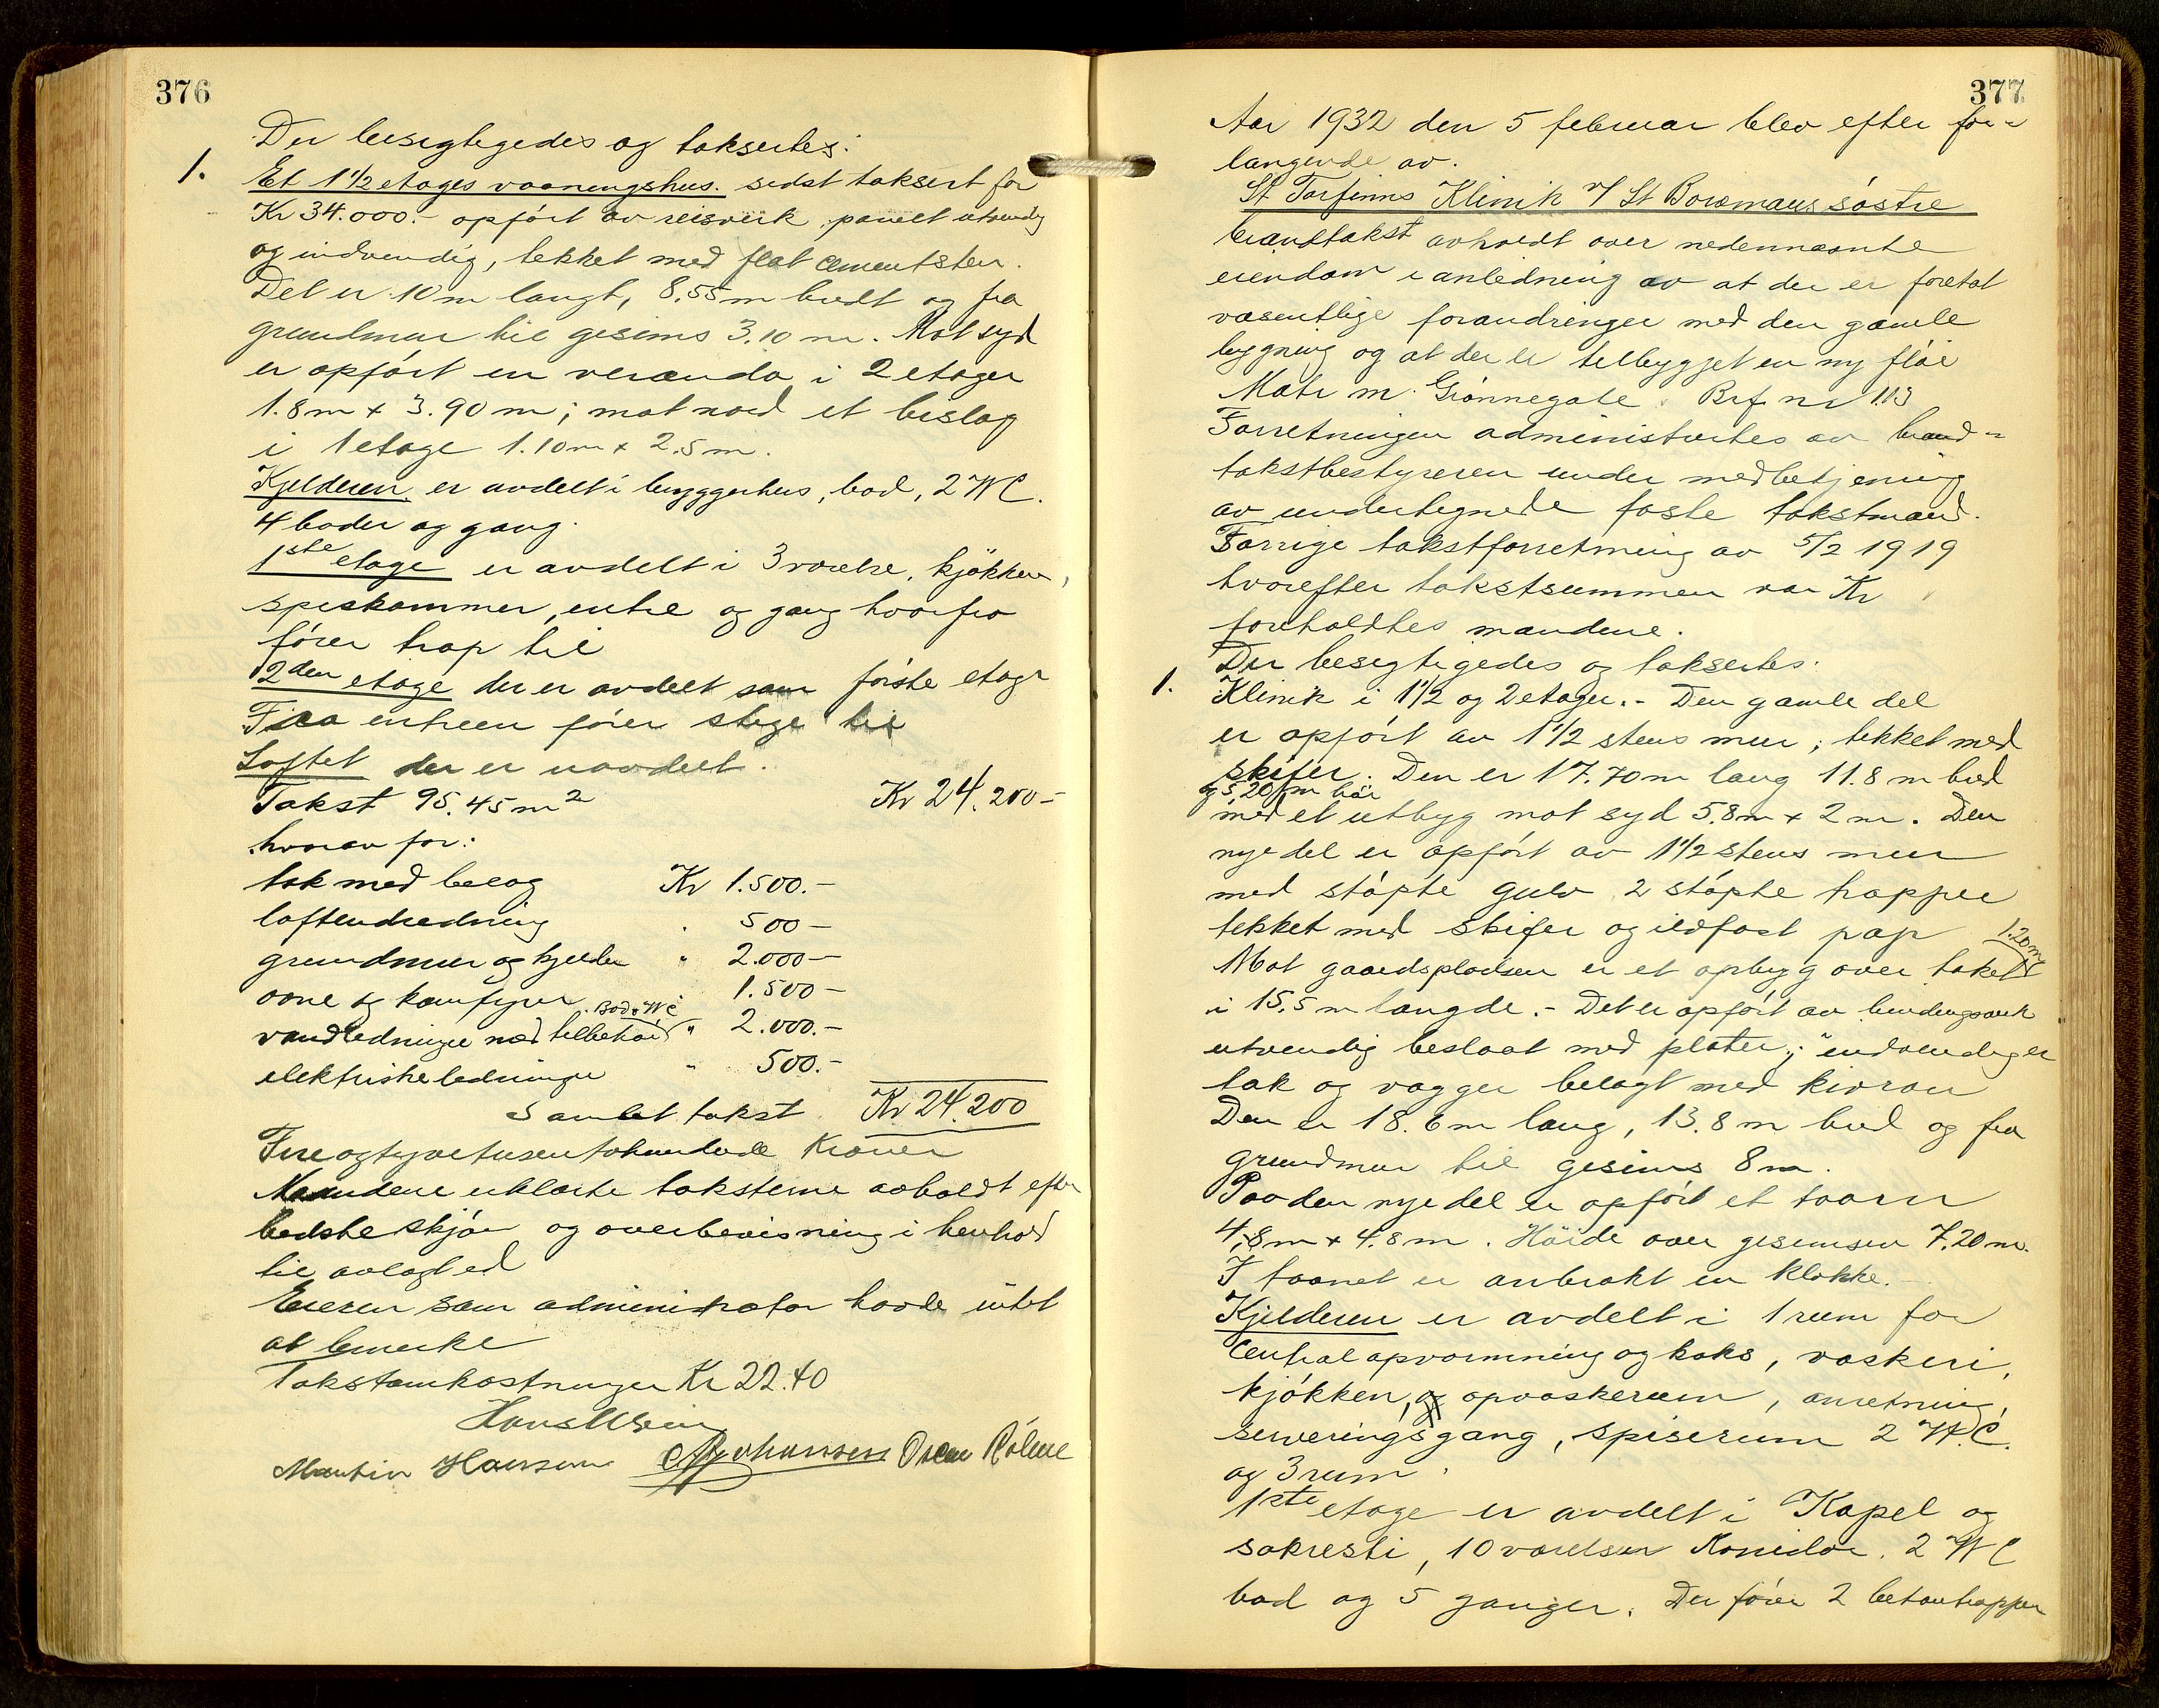 376
Der besegtigedes og taksertes:
1. Et 1 1/2 etages vaaningshus. sidst taksert for
Kr 34.000.- opført av reisverk, panelt utvendig
og indvendig, tekket med flat cementsten.
Det er 10 m langt, 8,55 m bredt og fra
grundmur til gesims 3.10 m. Mot syd
er opført en veranda i 2 etager
1.8 m + 3.90 m; mot nord et bislag
i 1 etage 1.10 m + 2.5 m.
Kjelderen er avdelt i bryggerhus, bad, 2 WC.
4 boder og gang.
1ste etage er avdelt i 3 værelse, kjøkken,
spiskammer, entre og gang hvorfra
fører trap til
2den etage der er avdelt som første etage
Fra entreen fører stige til
Loftet der er uavdelt.
Takst 95.45 m2 Kr 24.200-
hvorav for:
tak med belag Kr 1.500.-
loftindredning " 500-
grundmur og kjelder " 2.000-
ovne og komfyrer 1.500-
Bad + WC
vandledninger med tilbehør " 2.000.-
elektriske ledninger " 500.-
Samlet takst Kr. 24.200
Fireogtyvetusentohundrede Kroner
Mændene erklærte taksterne avholdt efter
bedste skjøn og overbevisning i henhold
til avlagt ed
Eieren som administrator havde intet
at bemerke
Takstomkostninger Kr 22.40
Martin Hansen Johansen Oscar
377
Aar 1932 den 5 februar blev efter for-
langende av.
St Torfinns Klinik v/ St Boromæus søstre
brandtakst avholdt over nedennævnte
eiendom i anledning av at der er foretat
væsentlige forandringer med den gamle
bygning og at der er tilbygget en ny fløi
Matr nr. Grønnegate. Brf. nr 113
Forretningen administrertes av brand-
takstbestyreren under medbetjening
av undertegnede faste takstmænd.
Forrige takstforretning av 5/2 1919
hvorefter takstsummen var Kr
foreholdtes mændene.
Der besegtigedes og taksertes:
1. Klinik i 1 1/2 og 2 etager.- Den gamle del
er opført av 1 1/2 stens mur; tekket med
skifer. Den er 17.70 m lang 11.8 m bred
og 5,20 m høi
med et utbyg mot syd 5.8 m + 2 m. Den
nye del er opført av 1 1/2 stens mur
med støpte gulv, 2 støpte trapper
tekket med skifer og ildfast pap
Mot gaardspladsen er et opbygg over taket 1.20 m
i 15,5 m længde.- Det er opført av bindingsverk
utvendig beslaat med plater; indvendig er
tak og vægger belagt med
Den er 18.6 m lang, 13.8 m bred og fra
grundmur til gesims 8 m.
Paa den nye del er opført et taarn
4,8 m + 4.8 m. Høide over gesimsen 7.20 m.
I taarnet er anbrakt en klokke.-
Kjelderen er avdelt i 1 rum for
Centralopvarmning og koks, vaskeri,
kjøkken, opvaskerum, anretning,
serveringsgang, spiserum 2 W.C.
og 3 rum.
1ste etage er avdelt i Kapel og
sakresti, 10 værelser Korridor. 2 WC
bad og 5 ganger. Der fører 2 betontrapper